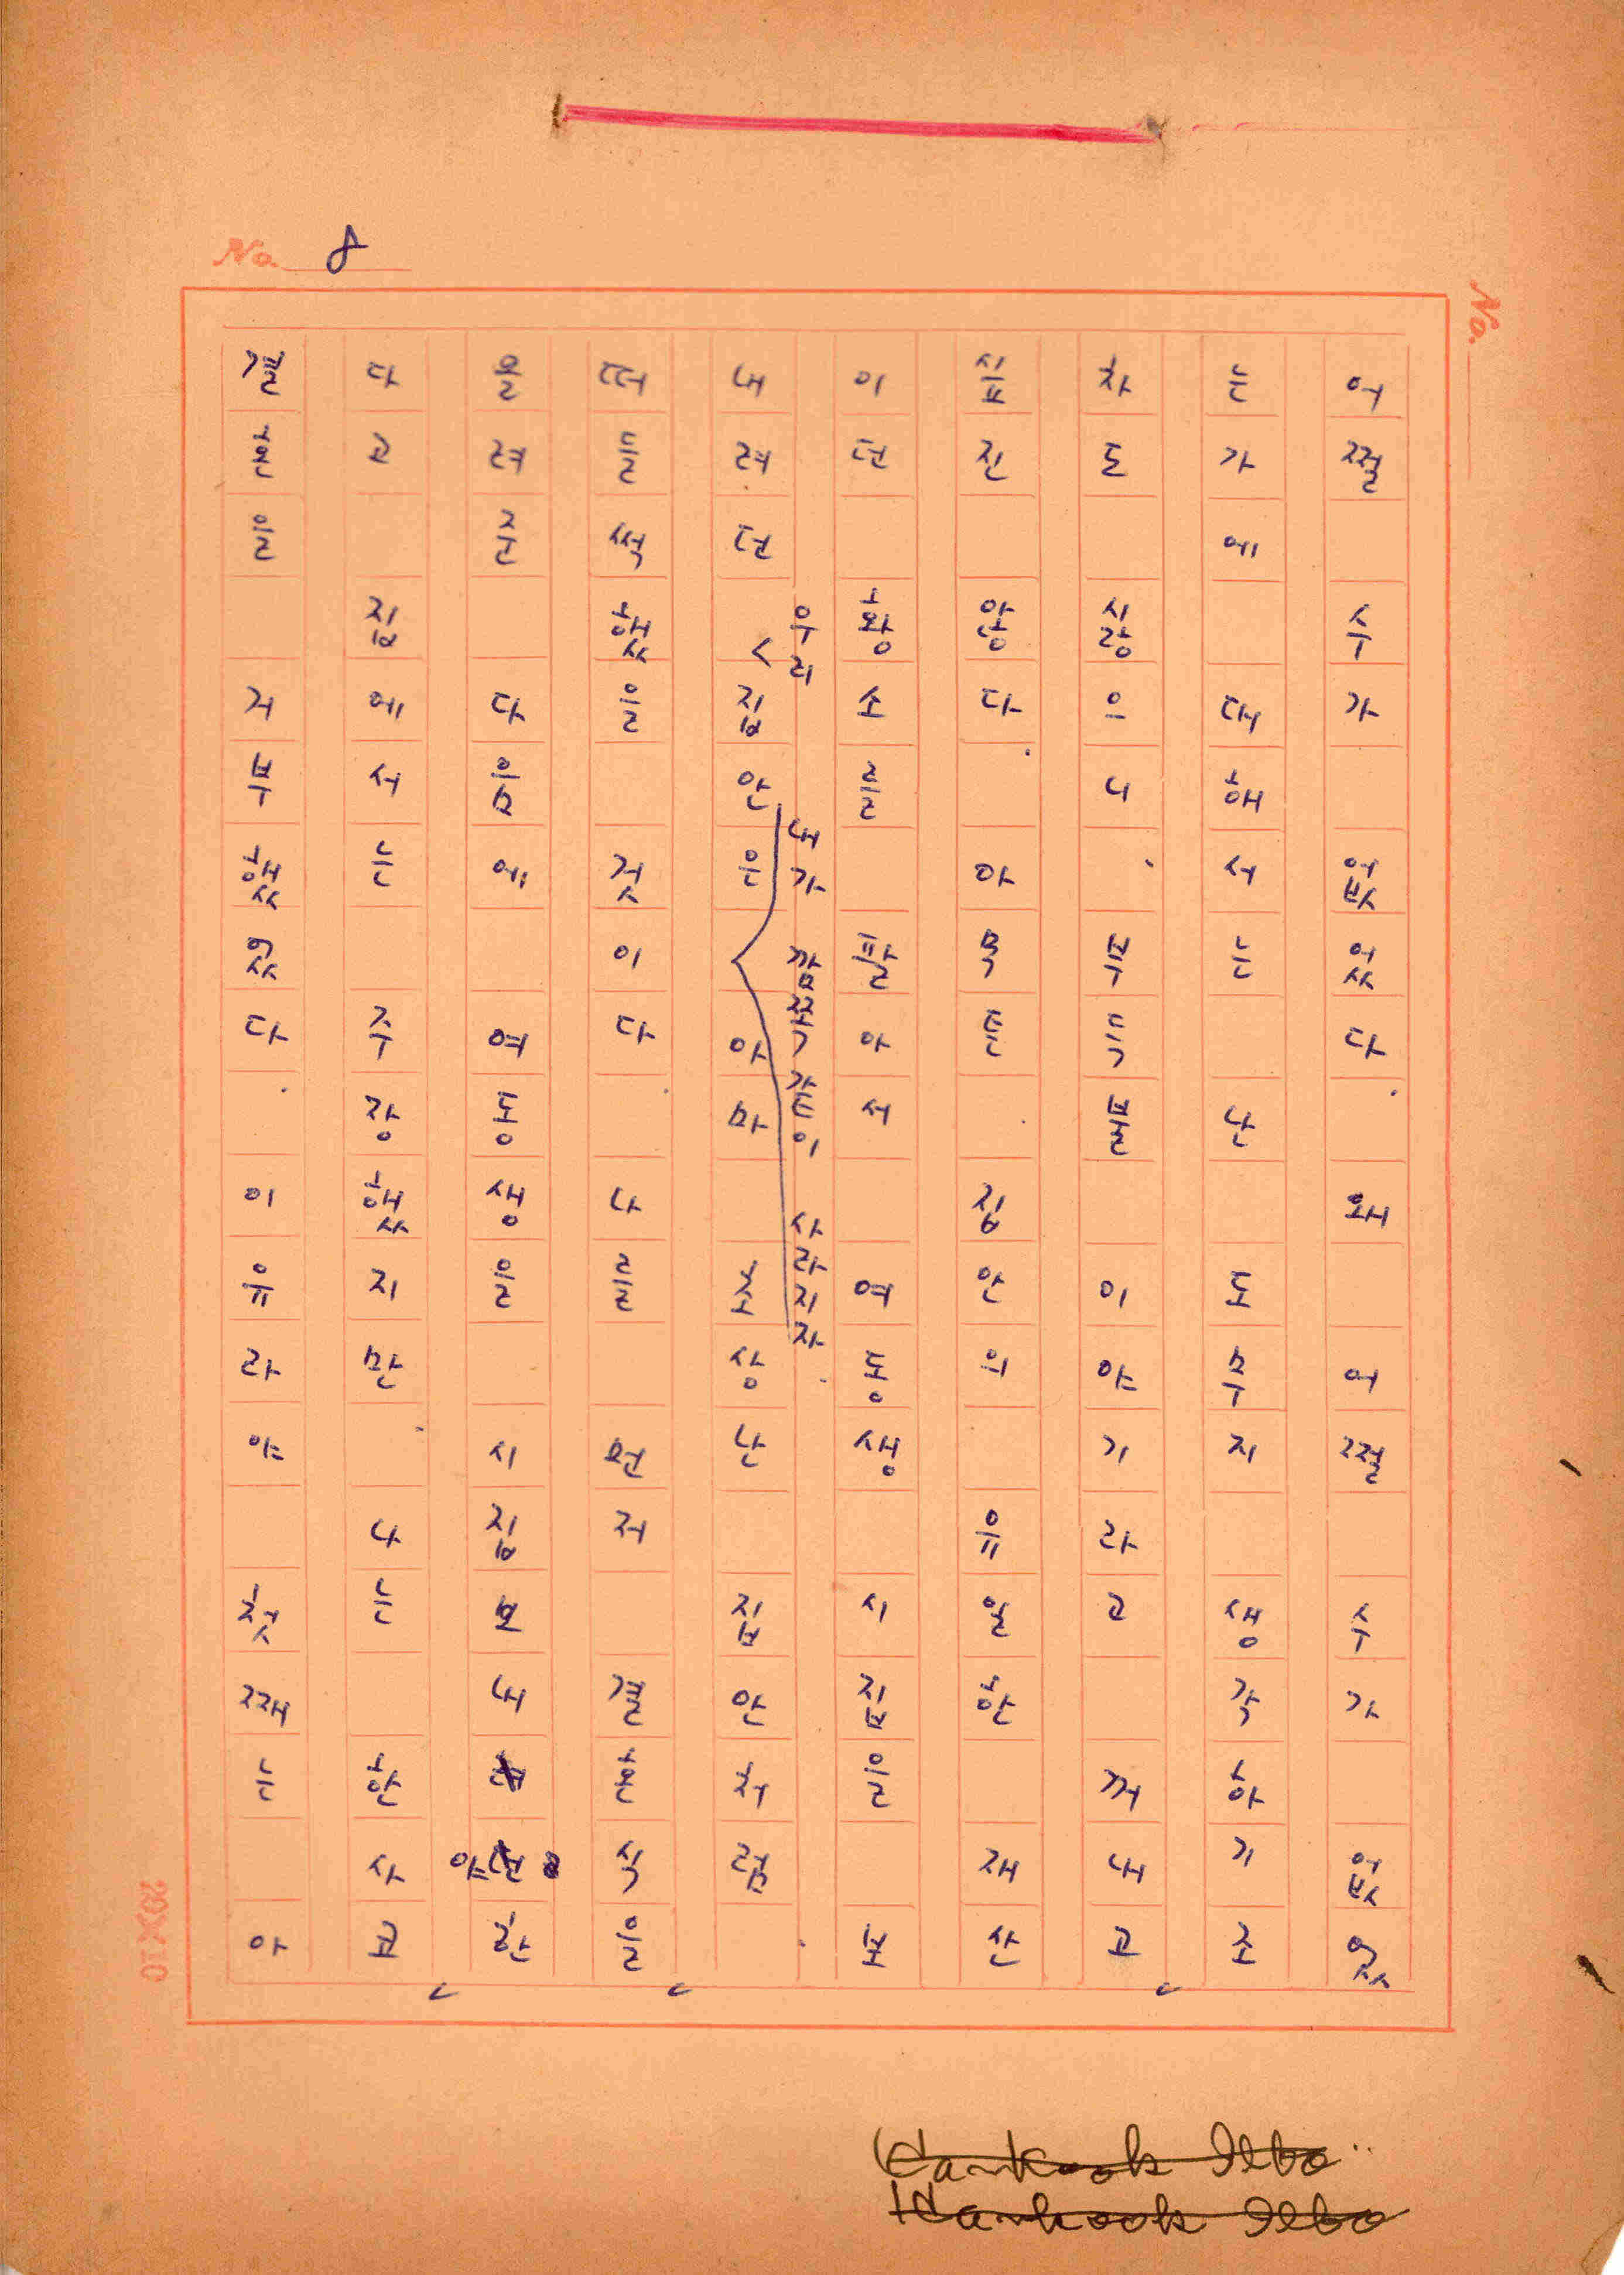 No. 8
No.
어쩔 수가 없었다. 왜 어쩔 수가 없었
는가에 대해서는 난 도무지 생각하기조
차도 싫으니, 부득불 이야기라고 꺼내고
싶진 않다. 집안의 유일한 재산
이던 황소를 팔아서 여동생 시집을 보
내려던 우리 집안은 내가 깜쪽같이 사라지자 아마 초상난 집안처럼
떠들썩했을 것이다. 나를 먼저 결혼식을
올려준 다음에 여동생을 시집보내야 한
다고 집에서는 주장했지만, 나는 한사코
결혼을 거부했었다. 이유라야 첫째는 아
20X10
Hankook Ilbo
Hankook Ilbo